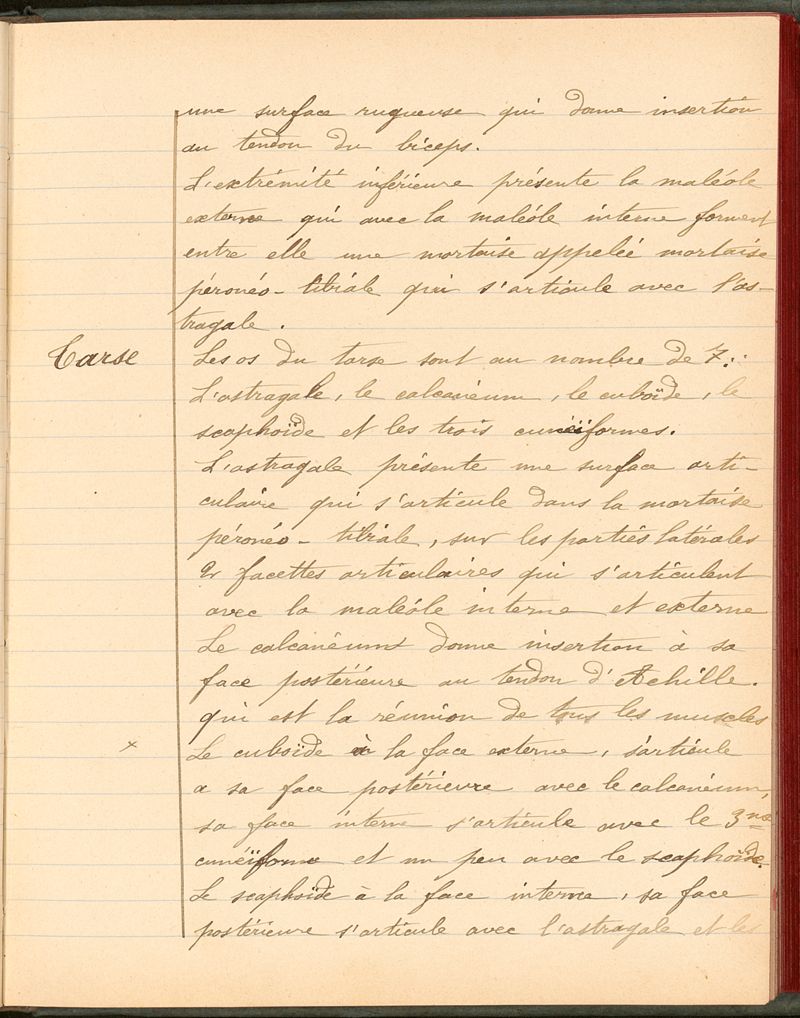 une surface rugueuse qui donne insertion
au tendon du biceps.
L'extrémité inférieure présente la maléole
externe qui avec la maléole interne forment
entre elle une mortaise appelée mortaise
péronéo-tibiale qui s'articule avec l'as-
tragale.
Tarse
Les os du tarse sont au nombre de 7 :
L'astragale, le calcanéum, le cuboïde, le
scaphoïde et les trois cunéïformes.
L'astragale présente une surface arti-
culaire qui s'articule dans la mortaise
péronéo-tibiale, sur les parties latérales
2 facettes articulaires qui s'articulent
avec la maléole interne et externe
Le calcanéum donne insertion à sa
face postérieure au tendon d'Achille.
qui est la réunion de tous les muscles
x
Le cuboïde à la face externe, s'articule
a sa face postérieure avec le calcanéum,
sa face interne s'articule avec le 3me
cunéïforme et un peu avec le scaphoïde.
Le scaphoïde à la face interne, sa face
postérieure s'articule avec l'astragale et les